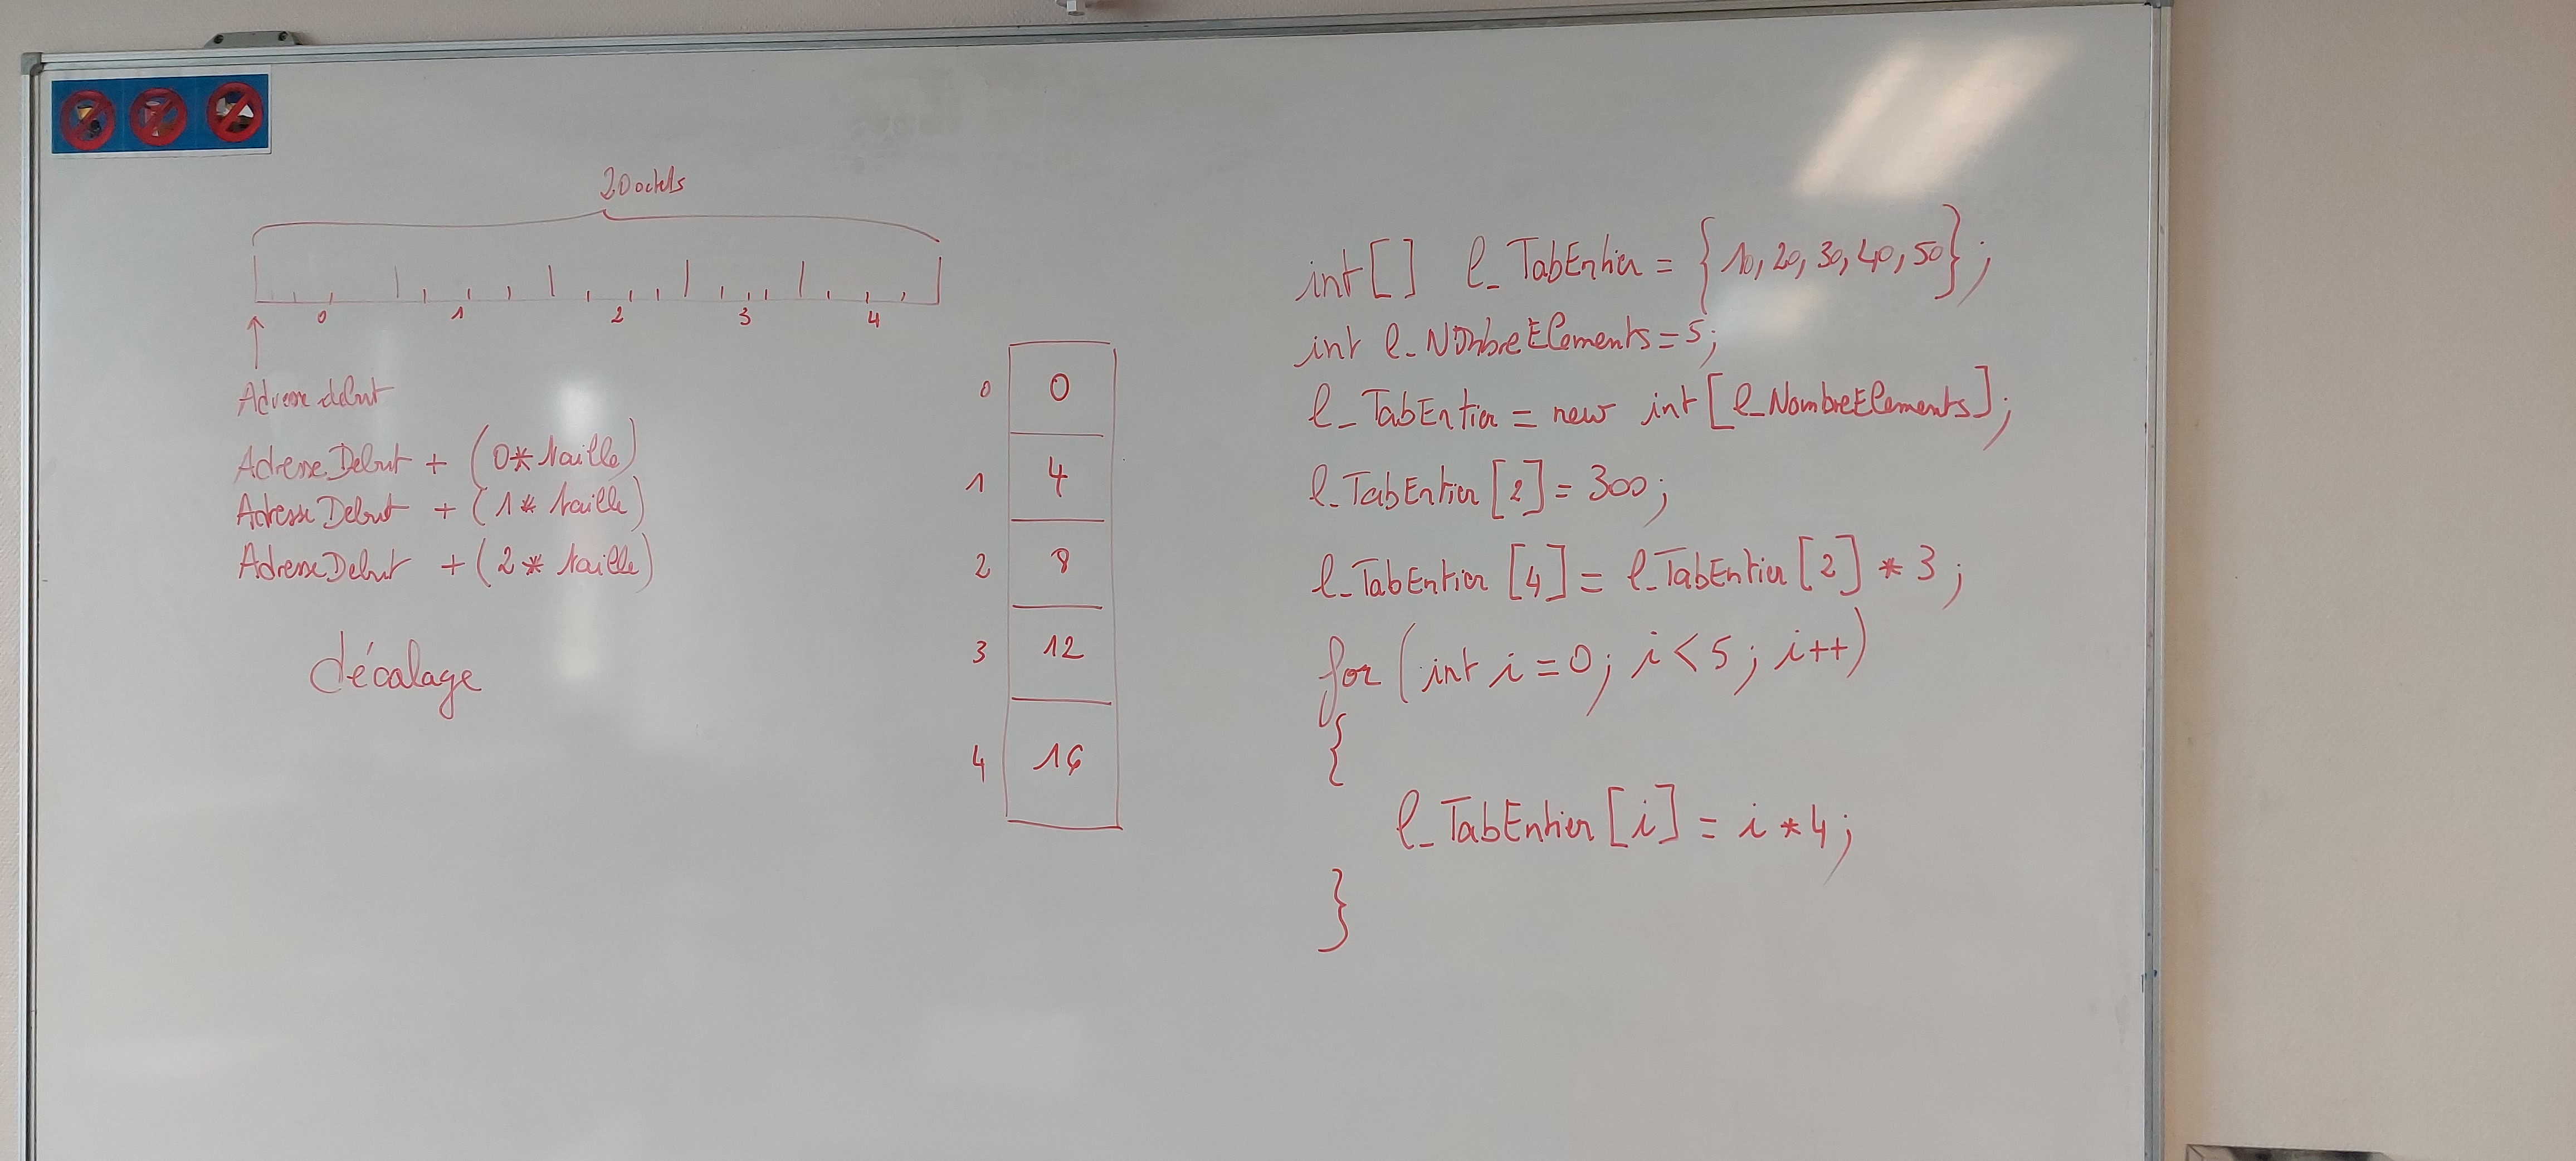 20 octets
0 1 2 3 4
Adresse début
AdresseDebut + (0 * taille)
AdresseDebut + (1 * taille)
AdresseDebut + (2 * taille)
décalage
0 0
1 4
2 8
3 12
4 16
int[] l_TabEntier = {10, 20, 30, 40, 50};
int l_NombreElements = 5;
l_TabEntier = new int[l_NombreElements];
l_TabEntier[2] = 300;
l_TabEntier[4] = l_TabEntier[2] * 3;
for (int i = 0; i < 5; i++)
{
l_TabEntier[i] = i * 4;
}